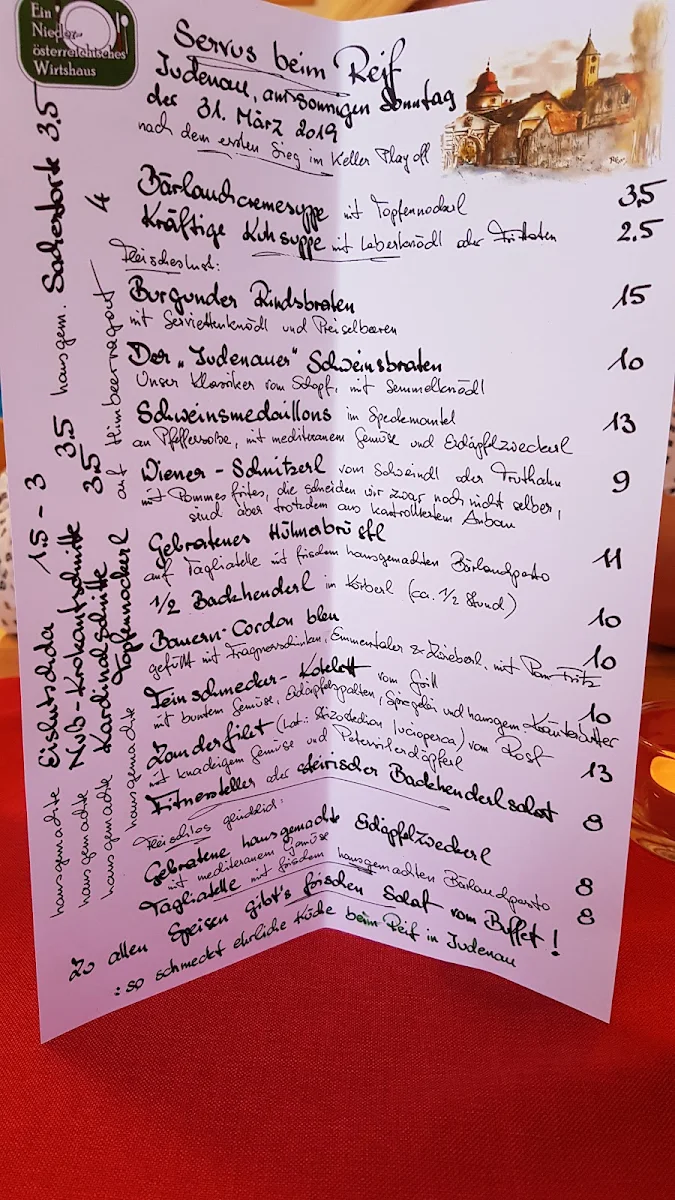 Ein
Nieder-
österreichisches
Wirtshaus
Servus beim Reif
Judenau, am sonnigen Sonntag
der 31. März 2019
nach dem ersten Sieg im Keller Play off
Bärlauchcremesuppe mit Topfennockerl 3,5
Kräftige Kuhsuppe mit Leberknödl oder Frittaten 2.5
Fleischeslust:
Burgunder Rindsbraten 15
mit Serviettenknödl und Preiselbeeren
Der „Judenauer" Schweinsbraten 10
Unser Klassiker vom Schopf, mit Semmelknödl
Schweinsmedaillons im Speckmantel 13
an Pfeffersoße, mit mediteranem Gemüse und Erdäpfelzweckerl
Wiener-Schnitzerl vom Schweindl oder Truthahn 9
mit Pommes frites, die schneiden wir zwar noch nicht selber,
sind aber trotzdem aus kontrolliertem Anbau
Gebratenes Hühnerbrüstl 11
auf Tagliatelle mit frischem hausgemachten Bärlauchpesto
1/2 Backhenderl im Körberl (ca. 1/2 Stund) 10
Bauern-Cordon bleu 10
gefüllt mit Tragnerschinken, Emmentaler & Zwieberl, mit Pom Fritz
Feinschmecker-Kotelett vom Grill 10
mit buntem Gemüse, Erdäpfelspalten, Spiegelei und hausgem. Kräuterbutter
Zanderfilet (Lat.: Stizostedion lucioperca) vom Rost 13
mit knackigem Gemüse und Petersilerdäpferl
Fitnessteller oder steirischer Backhenderlsalat 8
Fleischlos glücklich:
Gebratene hausgemachte Erdäpfelzweckerl 8
mit mediteranem Gemüse
Tagliatelle mit frischem hausgemachten Bärlauchpesto 8
Zu allen Speisen gibt's frischen Salat vom Buffet!
: so schmeckt ehrliche Küche beim Reif in Judenau
hausgemachte Eislutschda 1.5 - 3
hausgemachte Nuß-Krokantschnitte 3.5 hausgem. Sachertorte 3.5
hausgemachte Kardinalschnitte 3.5
hausgemachte Topfennockerl auf Himbeerragout 4